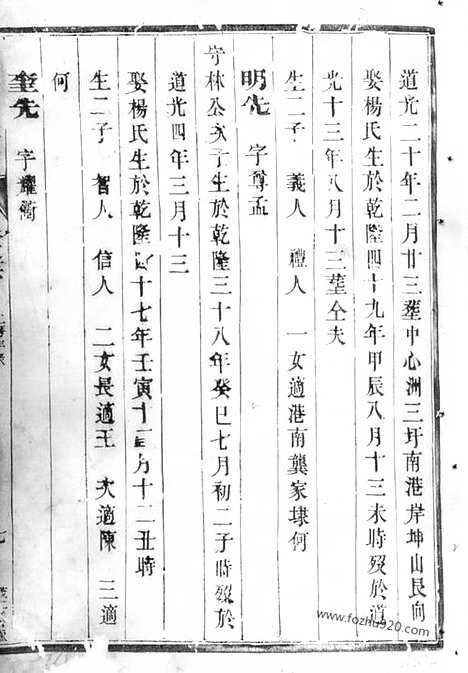 道光二十年二月廿三塟中心洲三圩南港岸坤山艮向
娶楊氏生於乾隆四十九年甲辰八月十三未時歿於道
光十三年八月十三塟仝夫
生二子 義人 禮人 一女適港南龔家埭何
明先 字尊孟
守林公次子生於乾隆三十八年癸巳七月初二子時歿於
道光四年三月十三
娶楊氏生於乾隆四十七年壬寅十一月十二丑時
生二子 智人 信人 二女長適王 次適陳 三適
何
奎先 字耀衢
www.fozhu920.com